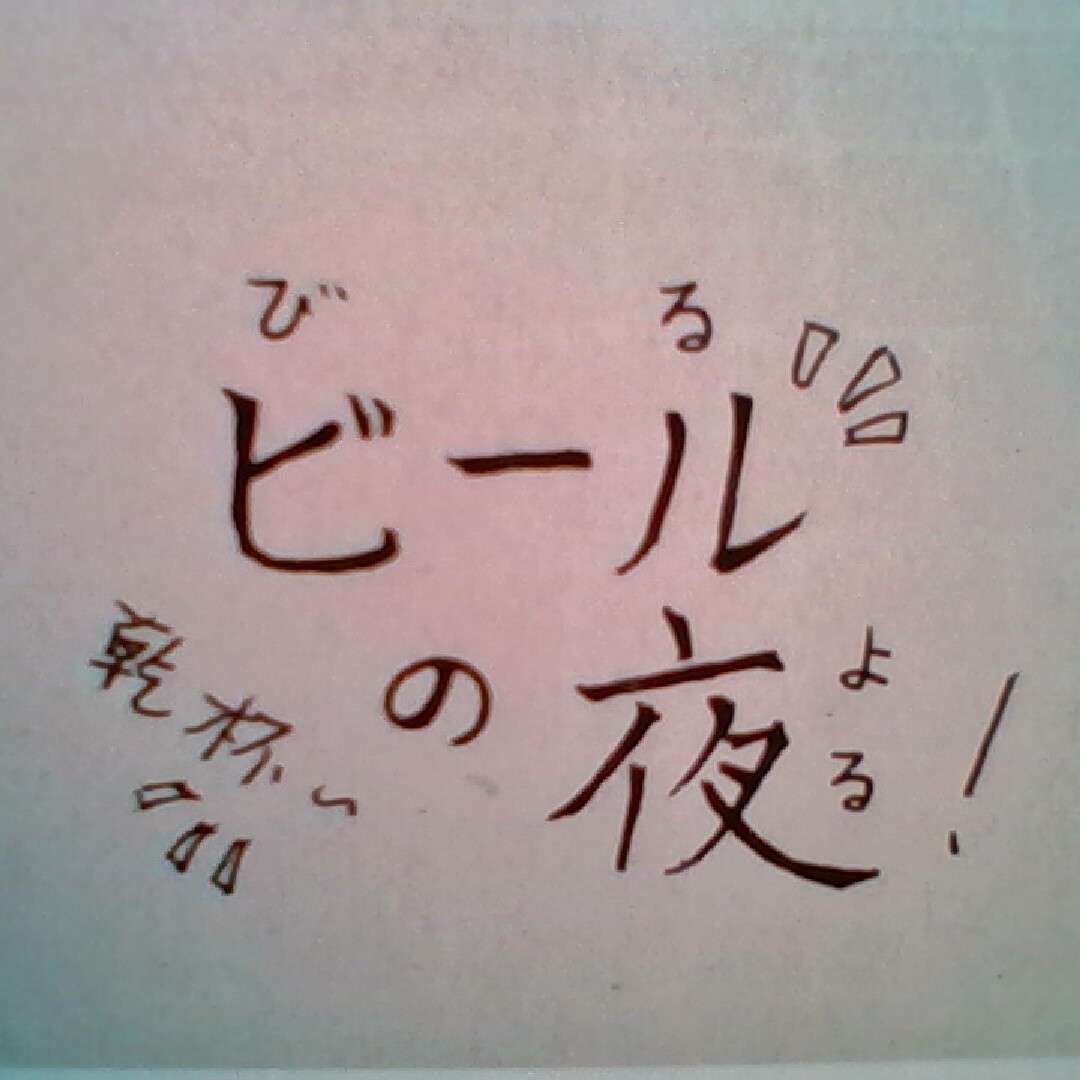 び る
ビール
の夜！
よる
乾杯〜